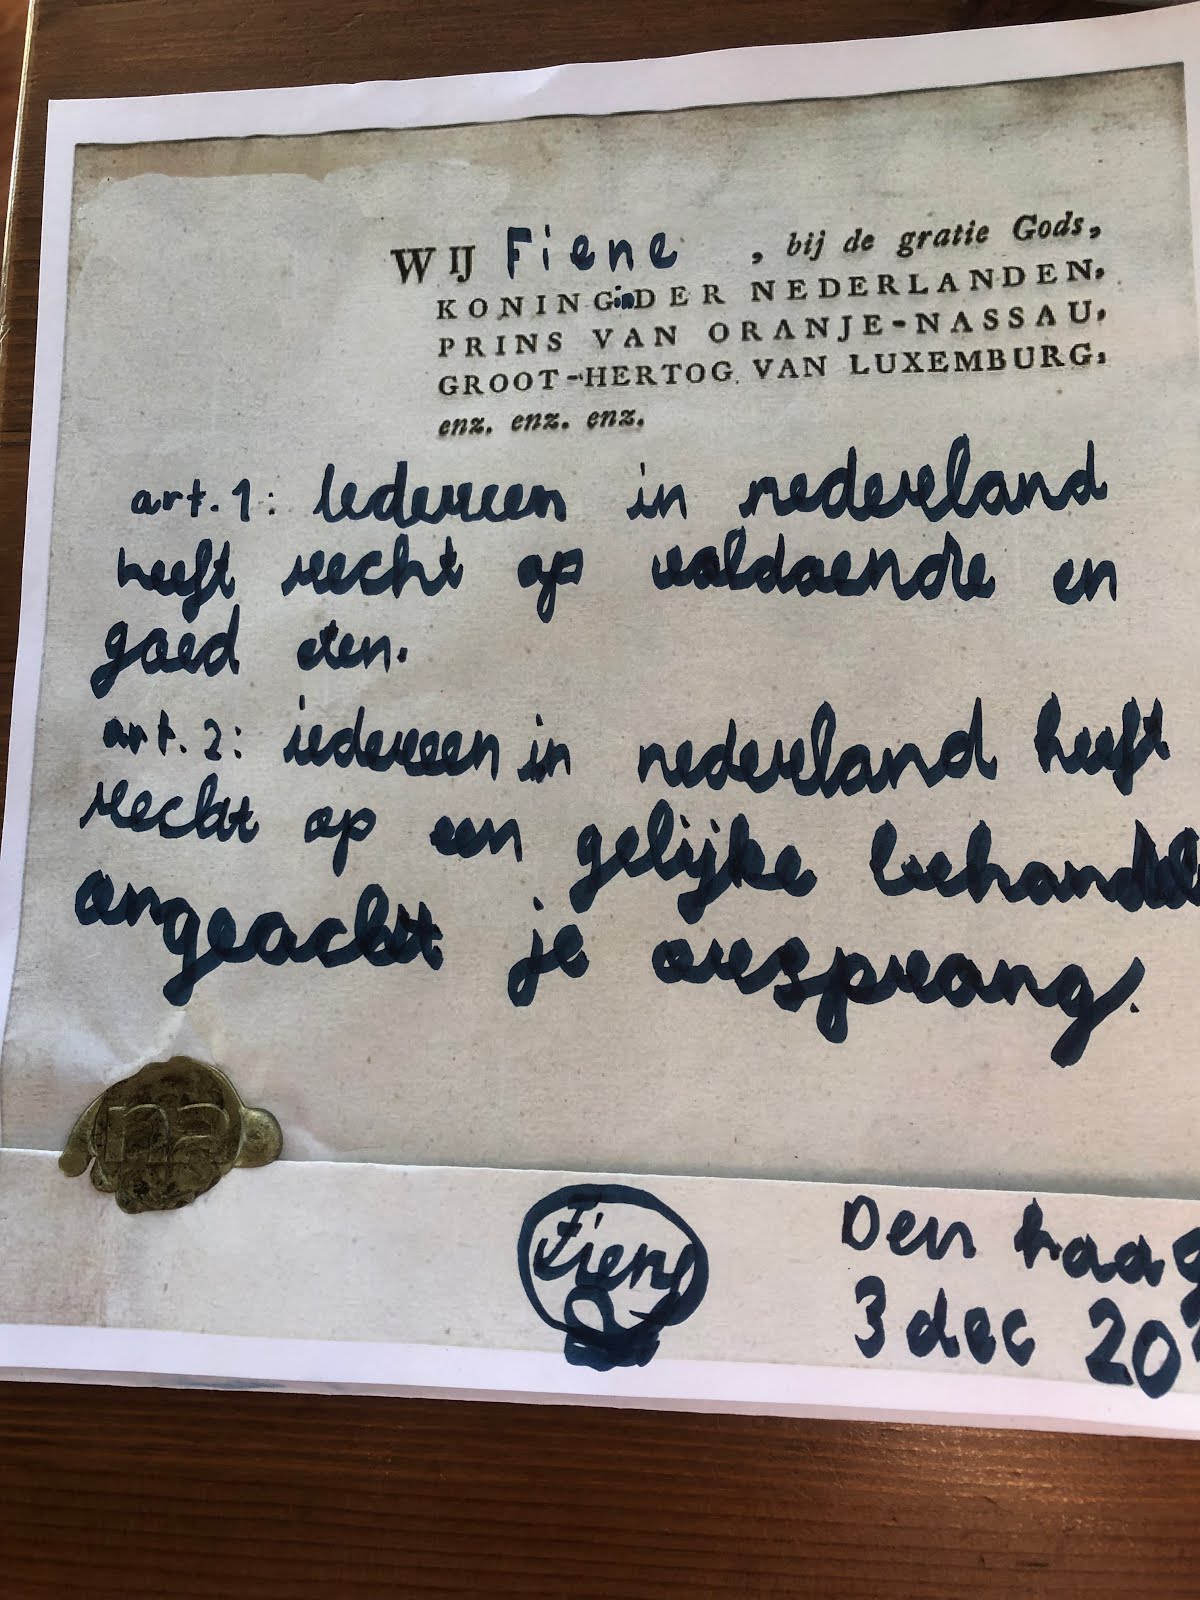 WIJ Fiene, bij de gratie Gods,
KONINGin DER NEDERLANDEN,
PRINS VAN ORANJE-NASSAU,
GROOT-HERTOG VAN LUXEMBURG,
enz. enz. enz.
art. 1: Iedereen in nederland
heeft recht op voldoende en
goed eten.
art. 2: iedereen in nederland heeft
recht op een gelijke behandel
ongeacht je oorsprong.
na
Fiene
Den haag
3 dec 20